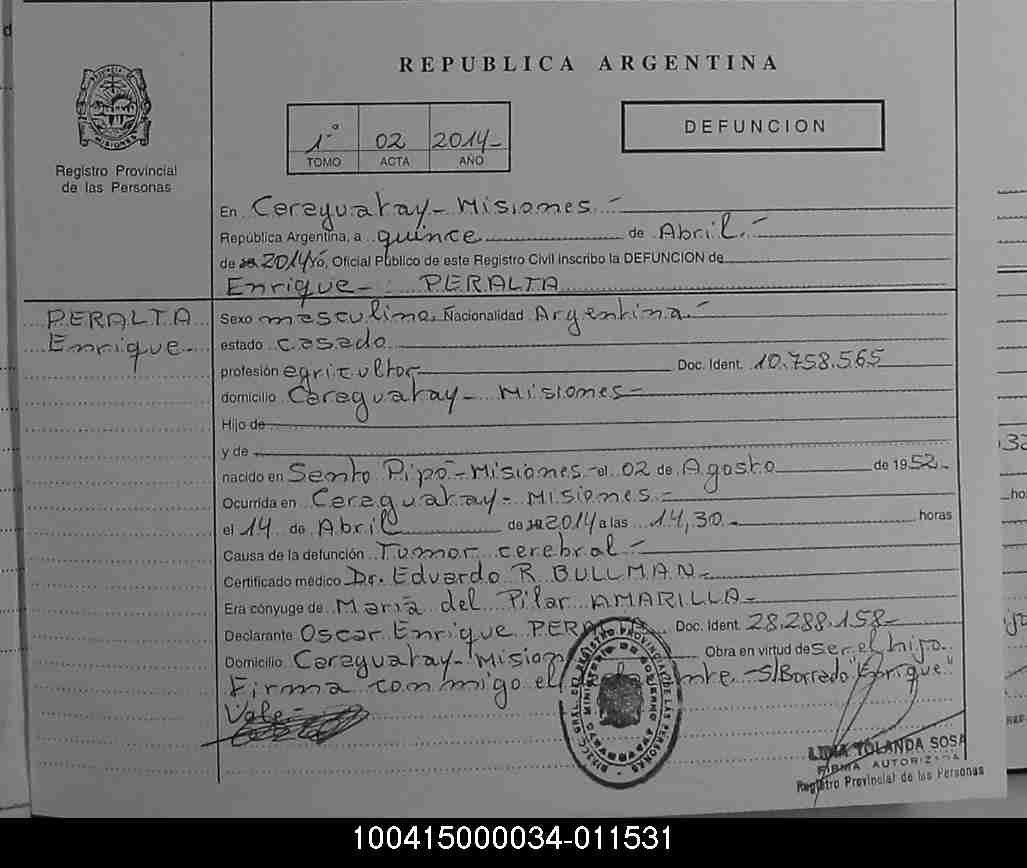 REPUBLICA ARGENTINA
1º 02 2014-
TOMO ACTA AÑO
DEFUNCION
Registro Provincial
de las Personas
En Caraguatay - Misiones -
República Argentina, a quince de Abril -
de 2014 yo, Oficial Público de este Registro Civil inscribo la DEFUNCION de
Enrique - PERALTA
PERALTA
Enrique
Sexo masculino Nacionalidad Argentina -
estado casado
profesión agricultor Doc. Ident. 10.758.565
domicilio Caraguatay - Misiones -
Hijo de
y de
nacido en Santo Pipó - Misiones - el 02 de Agosto de 1952 -
Ocurrida en Caraguatay - Misiones -
el 14 de Abril de 2014 a las 14,30 - horas
Causa de la defunción Tumor cerebral -
Certificado médico Dr. Eduardo R BULLMAN -
Era cónyuge de María del Pilar AMARILLA -
Declarante Oscar Enrique Doc. Ident. 28.288.158 -
Domicilio Caraguatay - Obra en virtud de ser el hijo.
Firma conmigo el - S/Borrado "Enrique"
Vale -
LIDIA YOLANDA SOSA
FIRMA AUTORIZADA
Registro Provincial de las Personas
100415000034-011531